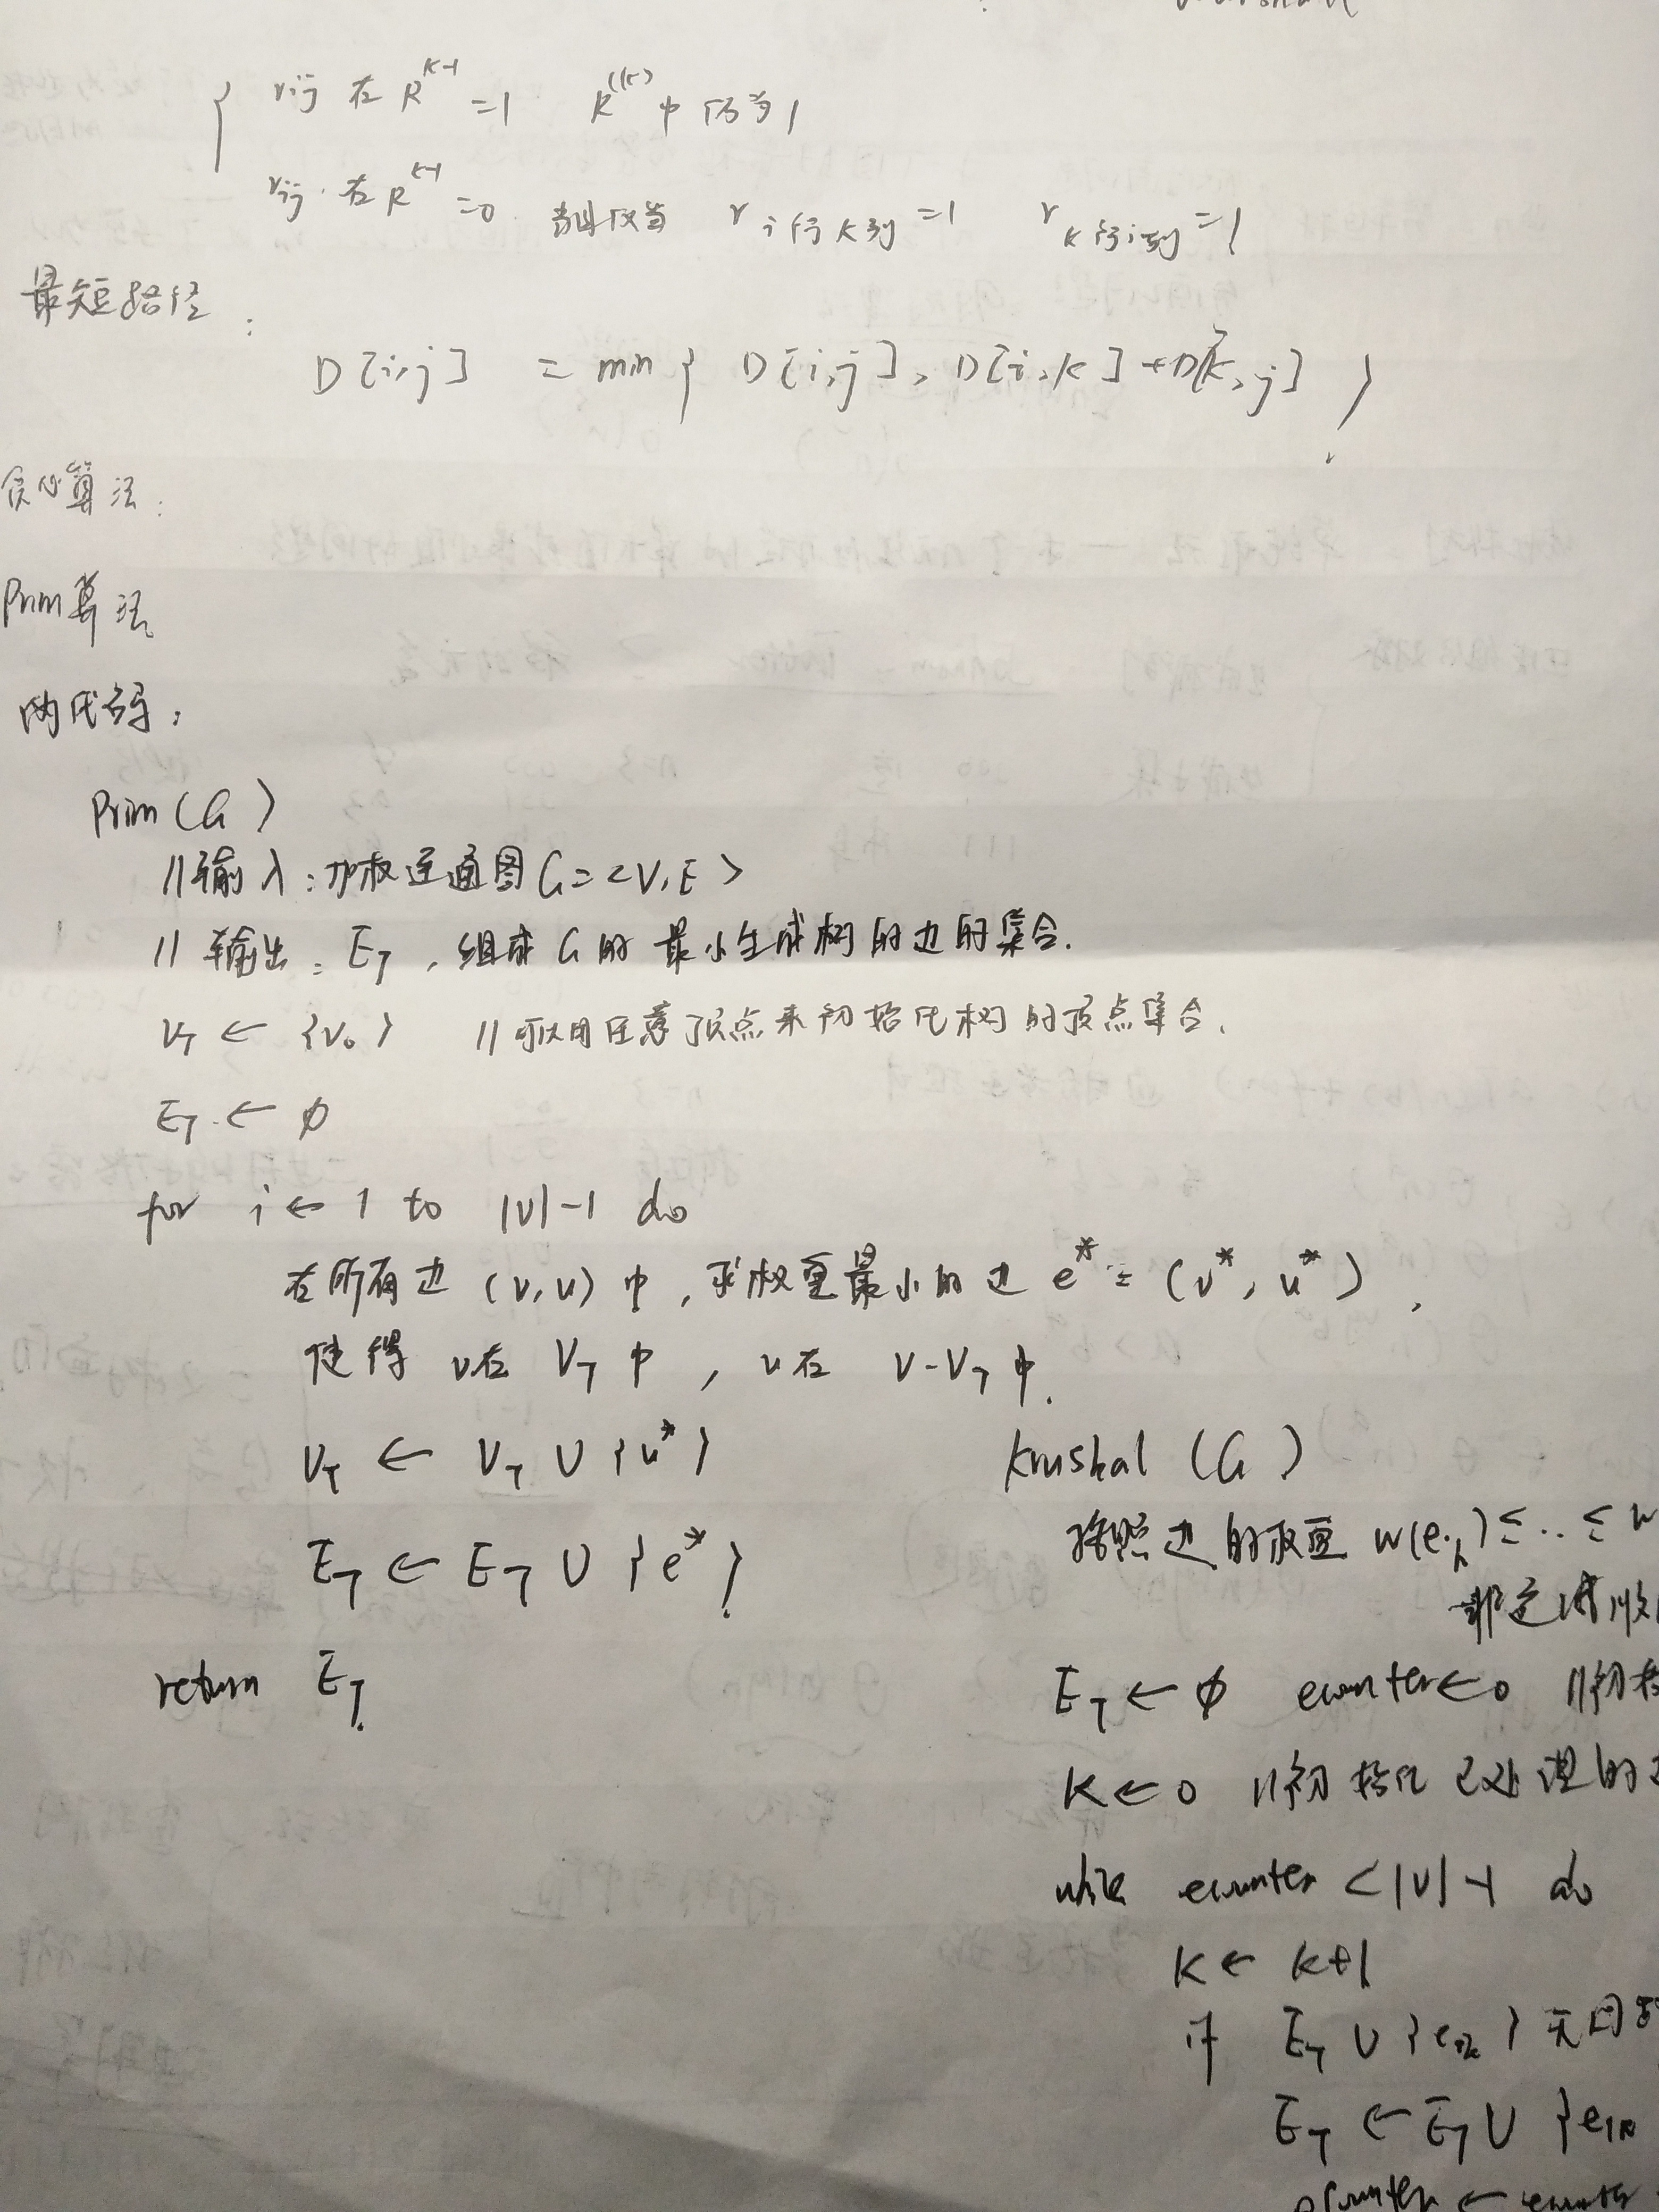 { rij 在 R^k-1 =1 R^(k) 中仍为1
rij 在 R^k-1 =0 当且仅当 r i行k列 =1 r k行j列 =1
最短路径:
D[i,j] = min { D[i,j], D[i,k]+D[k,j] }
贪心算法:
Prim算法
伪代码:
Prim(G)
//输入:加权连通图G=<V,E>
//输出:E_T,组成G的最小生成树的边的集合.
V_T ← {v₀} //可以用任意顶点来初始化树的顶点集合.
E_T ← ∅
for i ← 1 to |V|-1 do
在所有边(v,u)中,求权重最小的边 e*=(v*,u*),
使得 v在 V_T 中,u在 V-V_T 中.
V_T ← V_T ∪ {u*}
E_T ← E_T ∪ {e*}
return E_T
Krushal (G)
按照边的权重 w(ei₁)≤..≤
非递减
E_T ← ∅ ecounter←0 //初
K←0 //初始化已处理的
while ecounter <|V|-1 do
K ← k+1
if E_T ∪ {eik} 无回
E_T ← E_T ∪ {eik
ecounter ← ecounter